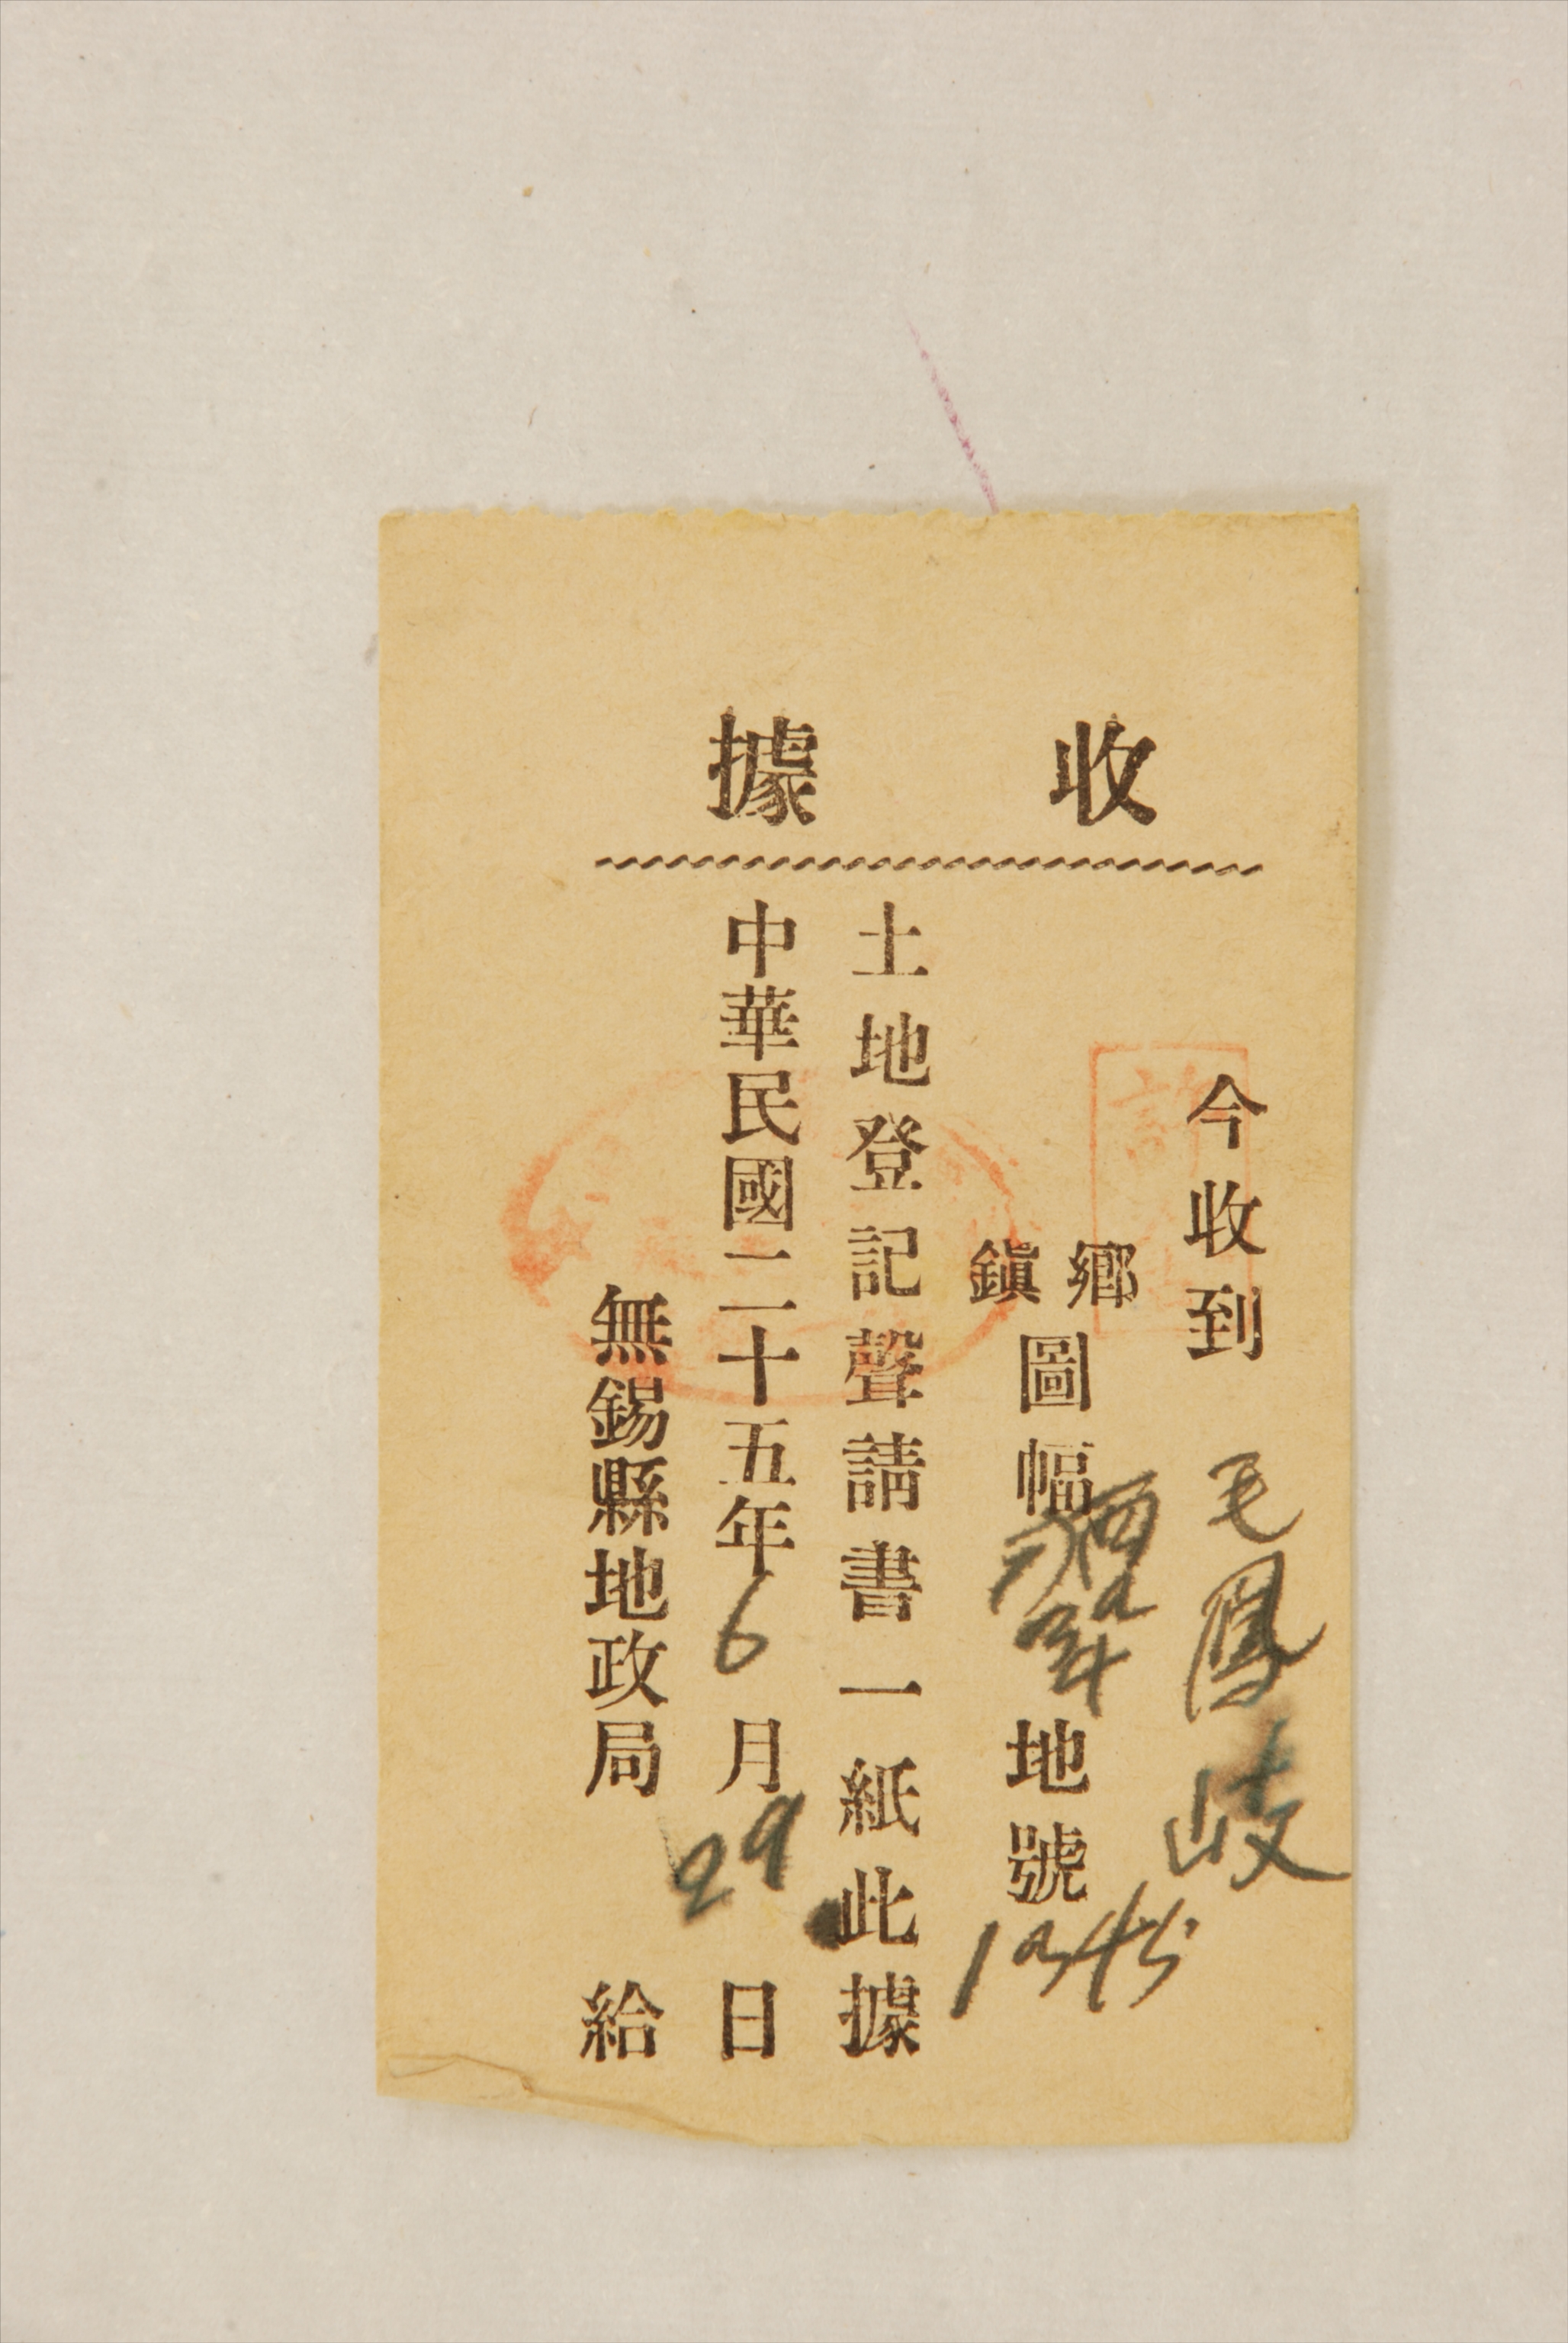 收據
今收到 毛鳳岐
鄉鎭圖幅 地號
土地登記聲請書一紙此據
中華民國二十五年6月29日
無錫縣地政局 給